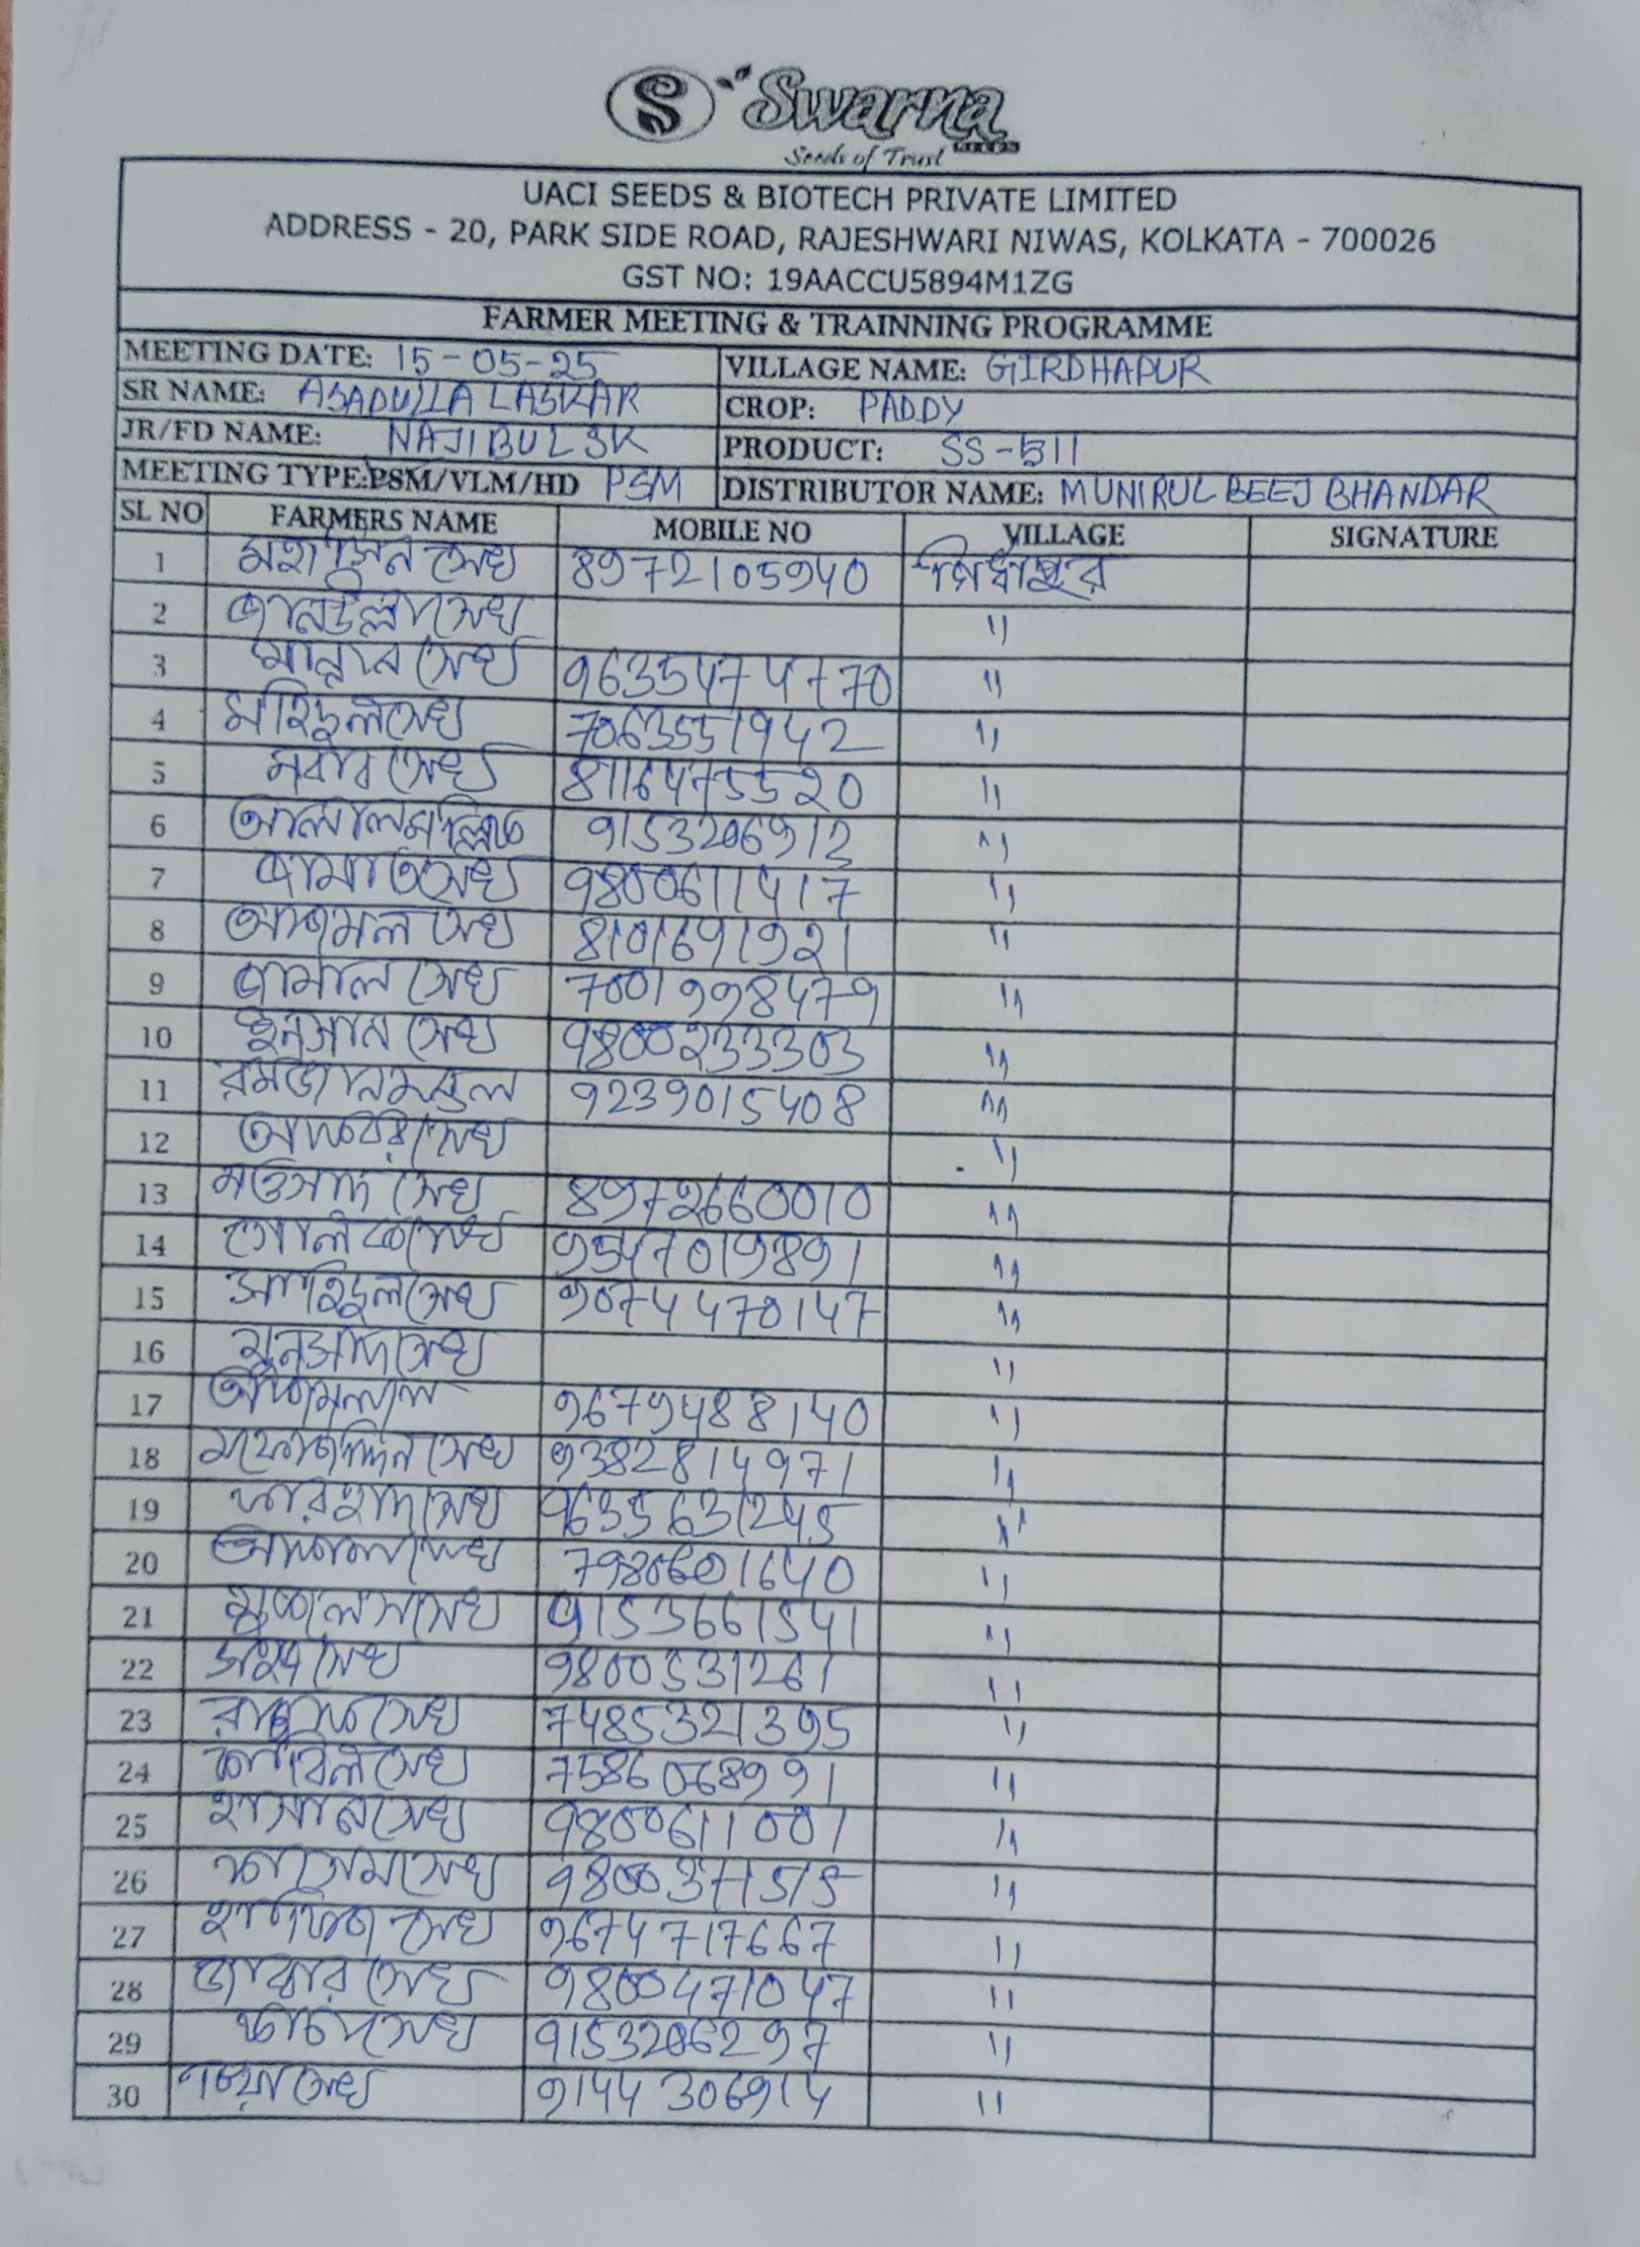 S Swarna SEEDS
Seeds of Trust
UACI SEEDS & BIOTECH PRIVATE LIMITED
ADDRESS - 20, PARK SIDE ROAD, RAJESHWARI NIWAS, KOLKATA - 700026
GST NO: 19AACCU5894M1ZG
FARMER MEETING & TRAINNING PROGRAMME
MEETING DATE: 15-05-25 VILLAGE NAME: GIRDHAPUR
SR NAME: ASADULLA LASKAR CROP: PADDY
JR/FD NAME: NAJIBUL SK PRODUCT: SS-511
MEETING TYPE:PSM/VLM/HD PSM DISTRIBUTOR NAME: MUNIRUL BEEJ BHANDAR
SL NO FARMERS NAME MOBILE NO VILLAGE SIGNATURE
1 মহাসিন সেখ 8972105940
2 জানউল্লা সেখ "
3 মান্নান সেখ 9635474770 "
4 মহিদুল সেখ 7063551942 "
5 সেখ 8116475520 "
6 আলাল মল্লিক 9153206912 "
7 জামাত সেখ 9800611417 "
8 আজমল সেখ 8101691921 "
9 জামাল সেখ 7001998479 "
10 ইনসান সেখ 9800233303 "
11 রমজান মন্ডল 9239015408 "
12 আকবর সেখ "
13 নওসাদ সেখ 8972660010 "
14 সেখ 9547019891 "
15 সাহিদুল সেখ 9074470147 "
16 সেখ "
17 9679488140 "
18 সেখ 9382814971 "
19 ফারহাদ সেখ 9635631245 "
20 সেখ 7980601640 "
21 সেখ 9153661541 "
22 সেখ 9800531261 "
23 সেখ 7485321395 "
24 কাবিল সেখ 7586068991 "
25 হাসান সেখ 9800611001 "
26 কাসেম সেখ 9800371515 "
27 হাফিজ সেখ 9674717667 "
28 জাব্বার সেখ 9800471047 "
29 সেখ 9153206297 "
30 সেখ 9144306914 "